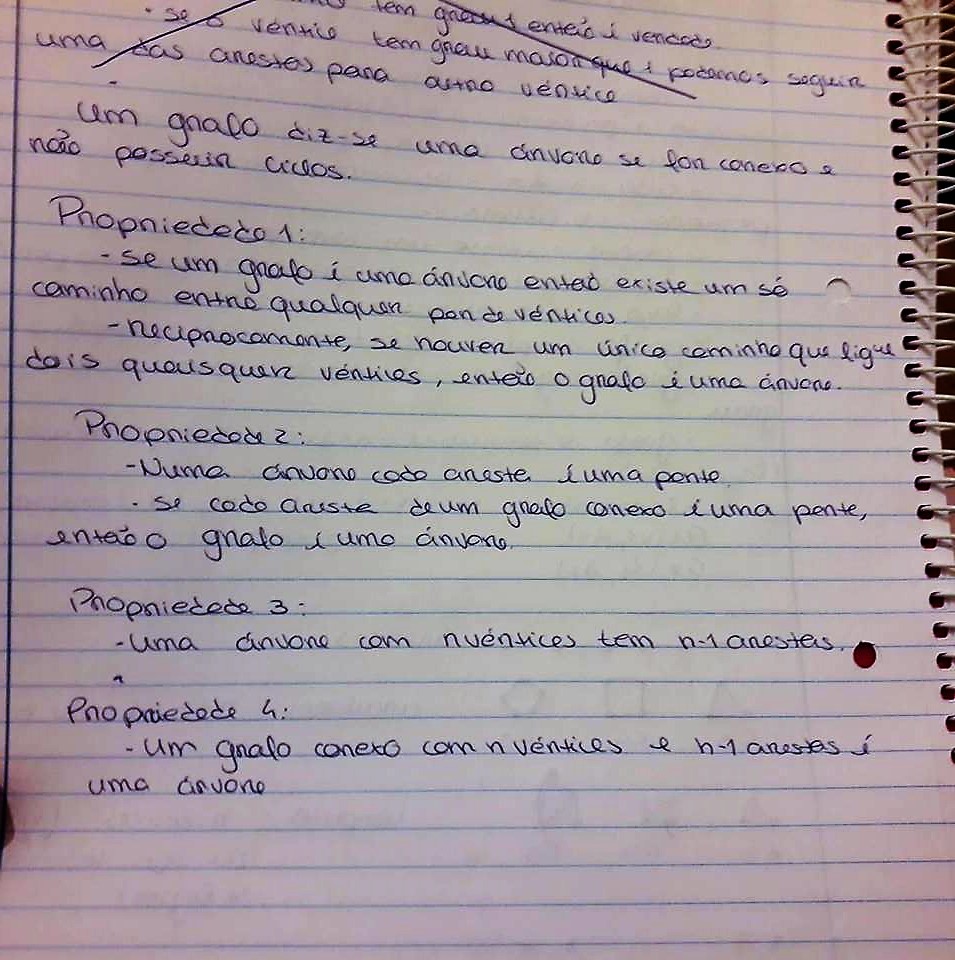 tem grau 1 então é verdade
- se o vértice tem grau maior que 1 podemos seguir
uma das arestas para outro vértice
Um grafo diz-se uma árvore se for conexo e
não possuir ciclos.
Propriedade 1:
- Se um grafo é uma árvore então existe um só
caminho entre qualquer par de vértices.
- reciprocamente, se houver um único caminho que ligue
dois quaisquer vértices, então o grafo é uma árvore.
Propriedade 2:
- Numa árvore cada aresta é uma ponte.
- Se cada aresta de um grafo conexo é uma ponte,
então o grafo é uma árvore.
Propriedade 3:
- Uma árvore com n vértices tem n-1 arestas.
Propriedade 4:
- Um grafo conexo com n vértices e n-1 arestas é
uma árvore